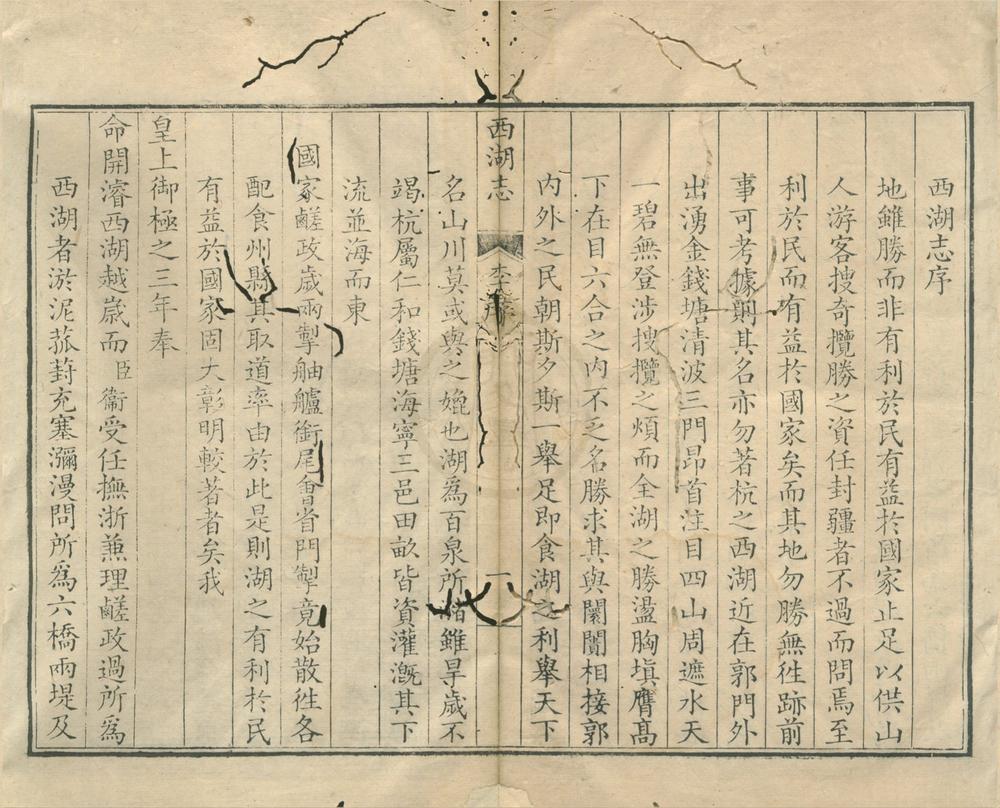 西湖志序
地雖勝而非有利於民有益於國家止足以供山
人游客搜奇攬勝之資任封疆者不過而問焉至
利於民而有益於國家矣而其地勿勝無徃跡前
事可考據則其名亦勿著杭之西湖近在郭門外
出湧金錢塘清波三門昂首注目四山周遮水天
一碧無登涉搜攬之煩而全湖之勝盪胸塡膺髙
下在目六合之内不乏名勝求其與闤闠相接郭
内外之民朝斯夕斯一舉足即食湖之利舉天下
西湖志
李序
一
名山川莫或與之媲也湖爲百泉所瀦雖旱歲不
竭杭屬仁和錢塘海寧三邑田畝皆資灌漑其下
流並海而東
國家鹺政歲兩掣舳艫銜尾會省門掣竟始散徃各
配食州縣其取道率由於此是則湖之有利於民
有益於國家固大彰明較著者矣我
皇上御極之三年奉
命開濬西湖越歲而臣衞受任撫浙兼理鹺政過所爲
西湖者淤泥菰葑充塞瀰漫問所爲六橋兩堤及